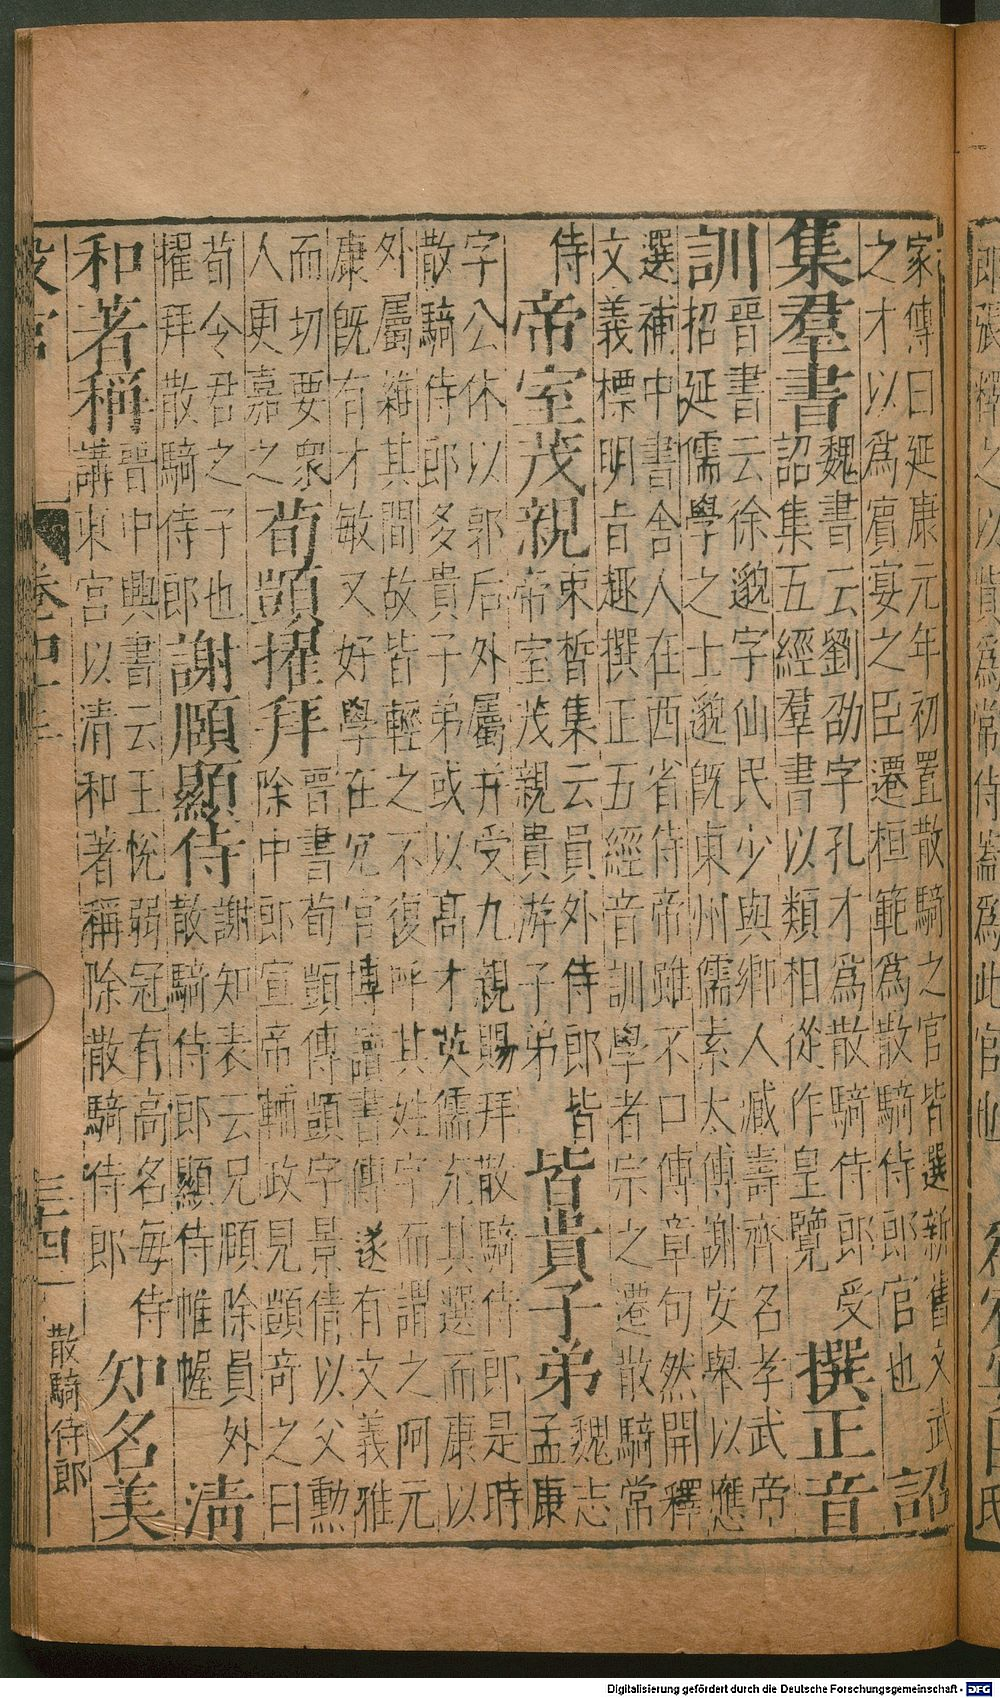 家傳曰延康元年初置散騎之官皆選新舊文武
之才以為賓宴之臣遷桓範為散騎侍郎官也
詔
集羣書
魏書云劉劭字孔才為散騎侍郎受
詔集五經羣書以類相從作皇覽
撰正音
訓
晉書云徐邈字仙民少與鄉人臧壽齊名孝武帝
招延儒學之士邈既東州儒素太傅謝安舉以應
選補中書舍人在西省侍帝雖不口傅章句然開釋
文義標明旨趣撰正五經音訓學者宗之遷散騎常
侍
帝室茂親
束晳集云員外侍郎皆
帝室茂親貴游子弟
皆貴子弟
魏志
孟康
字公休以郭后外屬并受九親賜拜散騎侍郎是時
散騎侍郎多貴子弟或以高才英儒充其選而康以
外屬雜其間故皆輕之不復呼其姓字而謂之阿元
康既有才敏又好學在冗官博讀書傳遂有文義雅
而切要衆
人更嘉之
荀顗擢拜
晉書荀顗傳顗字景倩以父勳
除中郎宣帝輔政見顗奇之曰
荀令君之子也
擢拜散騎侍郎
謝頎顯侍
謝知表云兄頎除員外
散騎侍郎顯侍帷幄
清
和著稱
晉中興書云王悅弱冠有高名每侍
講東宮以清和著稱除散騎侍郎
知名美
設官
散騎侍郎
Digitalisierung gefördert durch die Deutsche Forschungsgemeinschaft - DFG